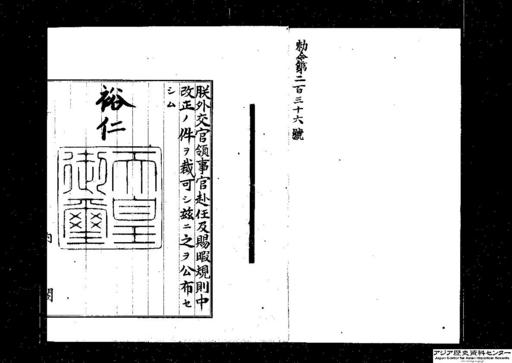 勅令第二百三十六號
朕外交官領事官赴任及賜暇規則中
改正ノ件ヲ裁可シ茲ニ之ヲ公布セ
シム
裕仁
天皇
御璽
内閣
アジア歴史資料センター
Japan Center for Asian Historical Records